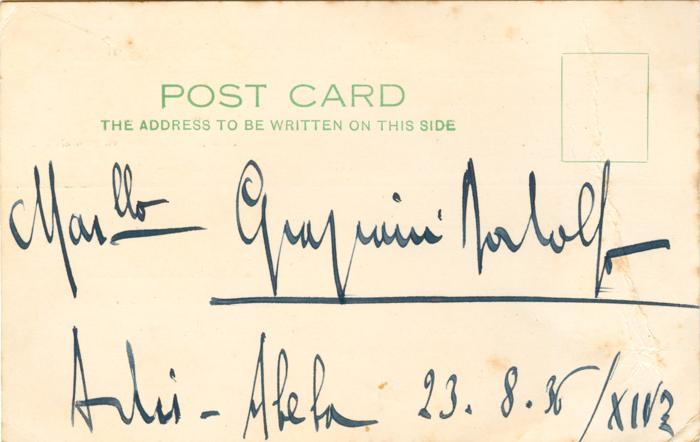 POST CARD
THE ADDRESS TO BE WRITTEN ON THIS SIDE
Mar.llo Graziani Rodolfo
Adis-Abeba 23.8.36/XIV